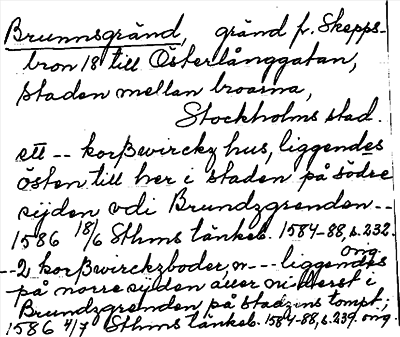 Brunnsgränd, gränd fr. Skepps-
bron 18 till Österlånggatan,
staden mellan broarna,
Stockholms stad.
ett -- korßwirckz hus, liggendes
östen till her i staden på södre
sijden vdi Brundzgrenden --
1586 18/6 Sthms tänkeb. 1584-88, s. 232.
orig.
-- 2 korßwirckzboder, n --- liggendes
på norre sijden äuer nillerst i
Brundzgrenden på stadzins tompt;
1586 4/7 Sthms tänkeb. 1584-88, s. 239. orig.